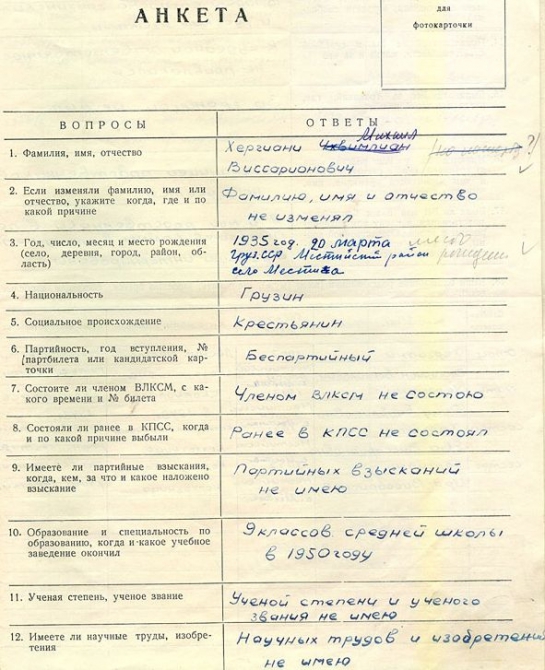 АНКЕТА
для
фотокарточки
ВОПРОСЫ ОТВЕТЫ
Михаил
1. Фамилия, имя, отчество Хергиани Чхвимлиан ?/
Виссарионович
2. Если изменяли фамилию, имя или Фамилию, имя и отчество
отчество, укажите когда, где и по не изменял
какой причине
3. Год, число, месяц и место рождения 1935 год. 20 марта место
(село, деревня, город, район, об- Груз.ССР Местийский район рождения
ласть) село Местиа
4. Национальность Грузин
5. Социальное происхождение Крестьянин
6. Партийность, год вступления, №
(партбилета или кандидатской кар- Беспартийный
точки
7. Состоите ли членом ВЛКСМ, с ка- Членом ВЛКСМ не состою
кого времени и № билета
8. Состояли ли ранее в КПСС, когда Ранее в КПСС не состоял
и по какой причине выбыли
9. Имеете ли партийные взыскания, Партийных взысканий
когда, кем, за что и какое наложено не имею
взыскание
10. Образование и специальность по 9 классов средней школы
образованию, когда и какое учебное в 1950 году
заведение окончил
11. Ученая степень, ученое звание Ученой степени и ученого
звания не имею
12. Имеете ли научные труды, изобре- Научных трудов и изобретений
тения не имею